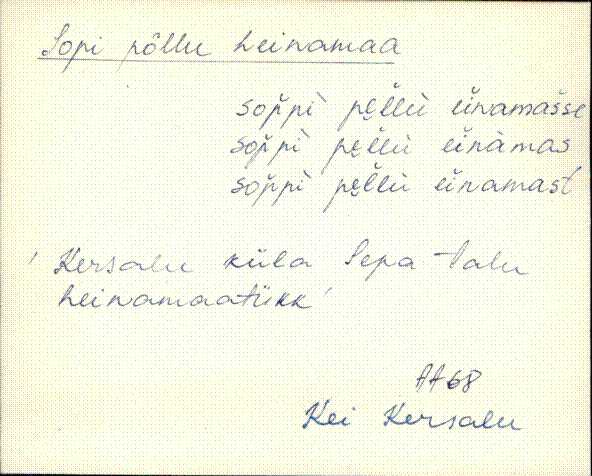 Sopi põllu heinamaa
soppi pe̮llu einamasse
soppi pe̮llu einamas
soppi pe̮llu einamast
' Kersalu küla Sepa talu
heinamaatükk '
AA 68
Kei Kersalu